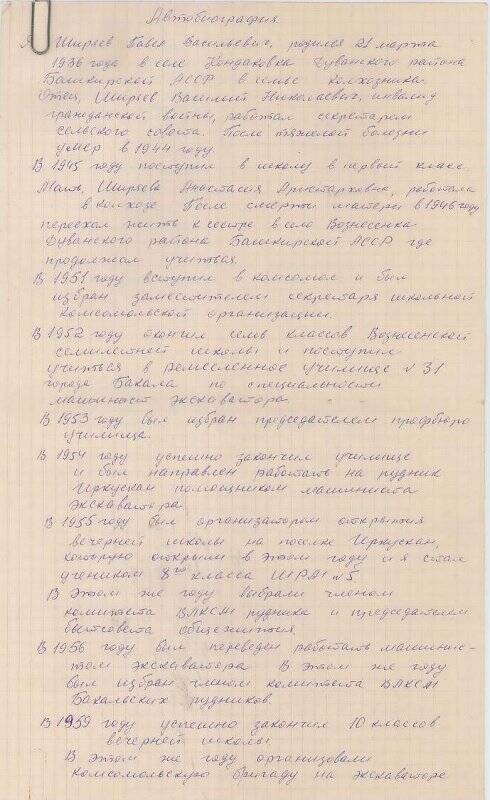 Автобиография
Я Ширяев Павел Васильевич, родился 21 марта
1936 года в селе Кондаковка Дуванского района
Башкирской АССР в семье колхозника.
Отец, Ширяев Василий Николаевич, инвалид
гражданской войны, работал секретарем
сельского совета. После тяжелой болезни
умер в 1944 году.
В 1945 году поступил в школу в первый класс.
Мать, Ширяева Анастасия Аристарховна, работала
в колхозе. После смерти матери в 1946 году
переехал жить к сестре в село Вознесенка
Дуванского района Башкирской АССР где
продолжал учиться.
В 1951 году вступил в комсомол и был
избран заместителем секретаря школьной
комсомольской организации.
В 1952 году окончил семь классов Вознесенской
семилетней школы и поступил
учиться в ремесленное училище №31
города Бакала по специальности
машинист экскаватора.
В 1953 году был избран председателем профбюро
училища.
В 1954 году успешно закончил училище
и был направлен работать на рудник
Иркускан помощником машиниста
экскаватора.
В 1955 году был организатором открытия
вечерней школы на поселке Иркускан,
которую открыли в этом году и я стал
учеником 8го класса ШРМ №5
В этом же году выбрали членом
комитета ВЛКСМ рудника и председателем
бытсовета общежития.
В 1956 году был переведен работать машинис-
том экскаватора. В этом же году
был избран членом комитета ВЛКСМ
Бакальских рудников.
В 1959 году успешно закончил 10 классов
вечерней школы
В этом же году организовали
комсомольскую бригаду на экскаваторе